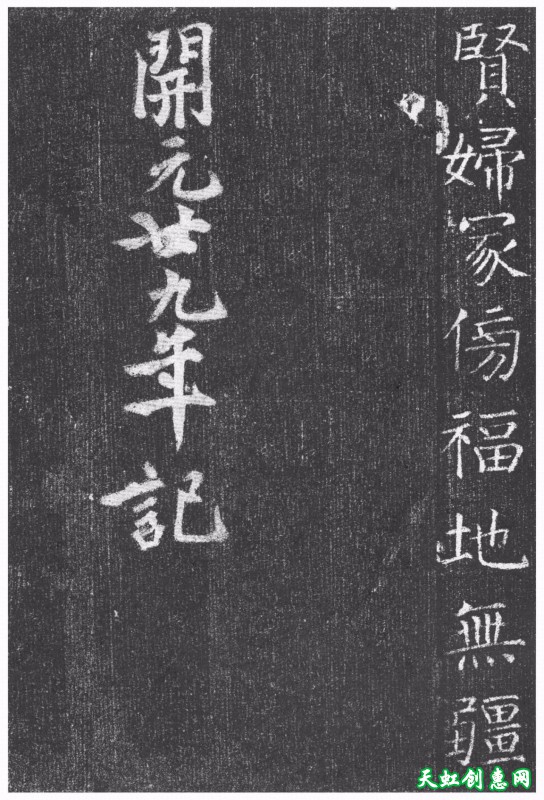 賢婦家傍福地無疆
開元廿九年記
天虹创惠网